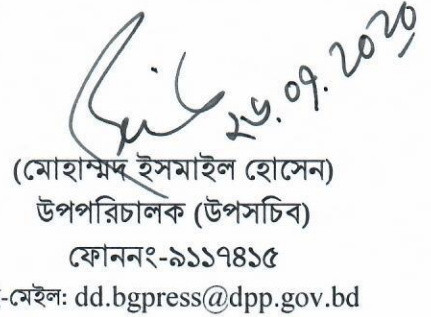 ২৬.০৭.২০২০
(মোহাম্মদ ইসমাইল হোসেন)
উপপরিচালক (উপসচিব)
ফোননং-৯১১৭৪১৫
-মেইল: dd.bgpress@dpp.gov.bd